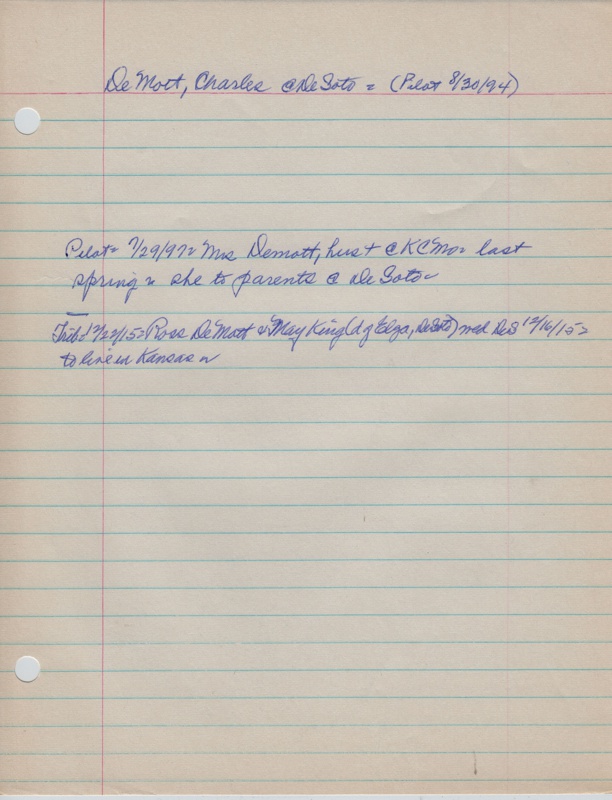 DeMott, Charles @ DeSoto = (Pilot 8/30/94)
Pilot = 7/29/97 = Mrs Demott, hust @ KCMo = last
spring = she to parents @ DeSoto =
Trib = 12/22/15 = Ross DeMott & May King (dg Elza, DeSoto) med DeS 12/16/15 =
to live in Kansas =